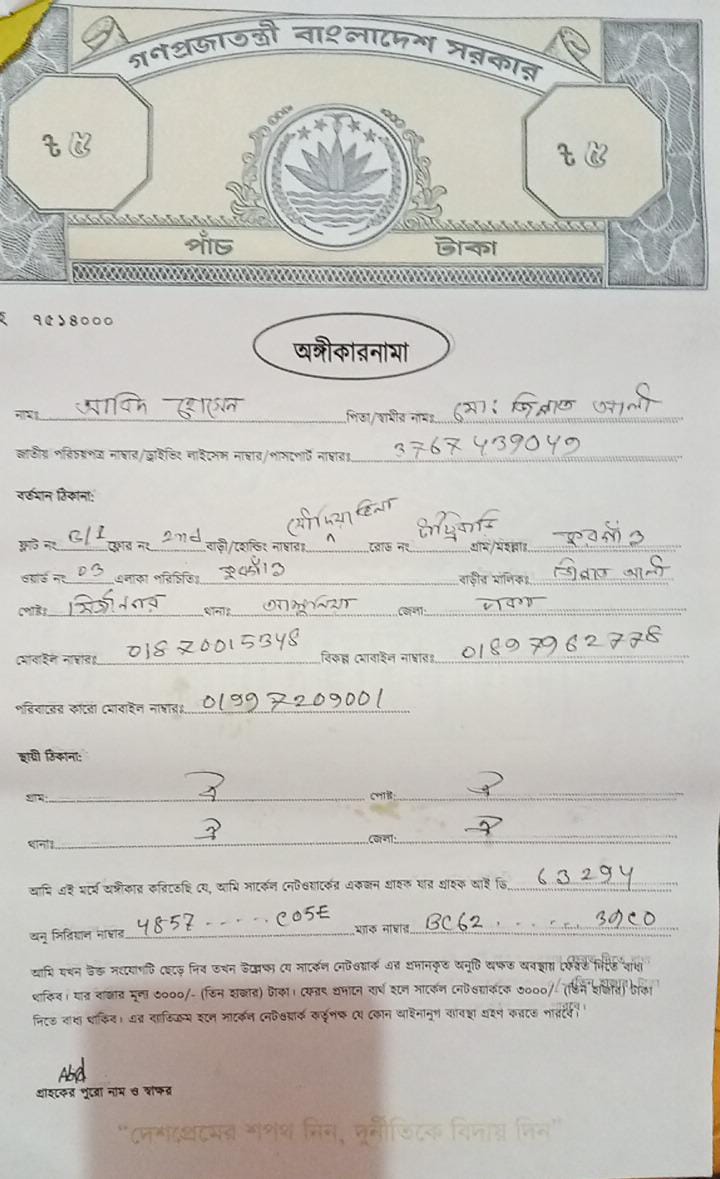 গণপ্রজাতন্ত্রী বাংলাদেশ সরকার
৳ ৫ ৳ ৫
পাঁচ টাকা
৭৫১৪০০০
অঙ্গীকারনামা
নামঃ আবিদ হোসেন পিতা/স্বামীর নামঃ মো: জিন্নাত আলী
জাতীয় পরিচয়পত্র নাম্বার/ড্রাইভিং লাইসেন্স নাম্বার/পাসপোর্ট নাম্বারঃ 3767439049
বর্তমান ঠিকানা:
ফ্ল্যাট নং B/1 ফ্লোর নং 2nd বাড়ী/হোল্ডিং নাম্বারঃ ভিলা রোড নং গ্রাম/মহল্লাঃ
ওয়ার্ড নং 03 এলাকা পরিচিতিঃ বাড়ীর মালিকঃ জিন্নাত আলী
পোষ্টঃ থানাঃ আশুলিয়া জেলা: ঢাকা
মোবাইল নাম্বারঃ 01870015348 বিকল্প মোবাইল নাম্বারঃ 01897962778
পরিবারের কারো মোবাইল নাম্বারঃ 01997209001
স্থায়ী ঠিকানা:
গ্রাম: ঐ পোষ্ট: ঐ
থানাঃ ঐ জেলা: ঐ
আমি এই মর্মে অঙ্গীকার করিতেছি যে, আমি সার্কেল নেটওয়ার্কের একজন গ্রাহক যার গ্রাহক আই ডি 63294
অনু সিরিয়াল নাম্বার 4857 ...... C05E ম্যাক নাম্বার BC62 ...... 39C0
আমি যখন উক্ত সংযোগটি ছেড়ে দিব তখন উল্লেক্ষ্য যে সার্কেল নেটওয়ার্ক এর প্রদানকৃত অনুটি অক্ষত অবস্থায় ফেরত দিতে বাধ্য
থাকিব। যার বাজার মূল্য ৩০০০/- (তিন হাজার) টাকা। ফেরৎ প্রদানে ব্যর্থ হলে সার্কেল নেটওয়ার্ককে ৩০০০/- (তিন হাজার) টাকা
দিতে বাধ্য থাকিব। এর ব্যতিক্রম হলে সার্কেল নেটওয়ার্ক কর্তৃপক্ষ যে কোন আইনানুগ ব্যবস্থা গ্রহণ করতে পারবে।
Abid
গ্রাহকের পুরো নাম ও স্বাক্ষর
“দেশপ্রেমের শপথ নিন, দুর্নীতিকে বিদায় দিন”